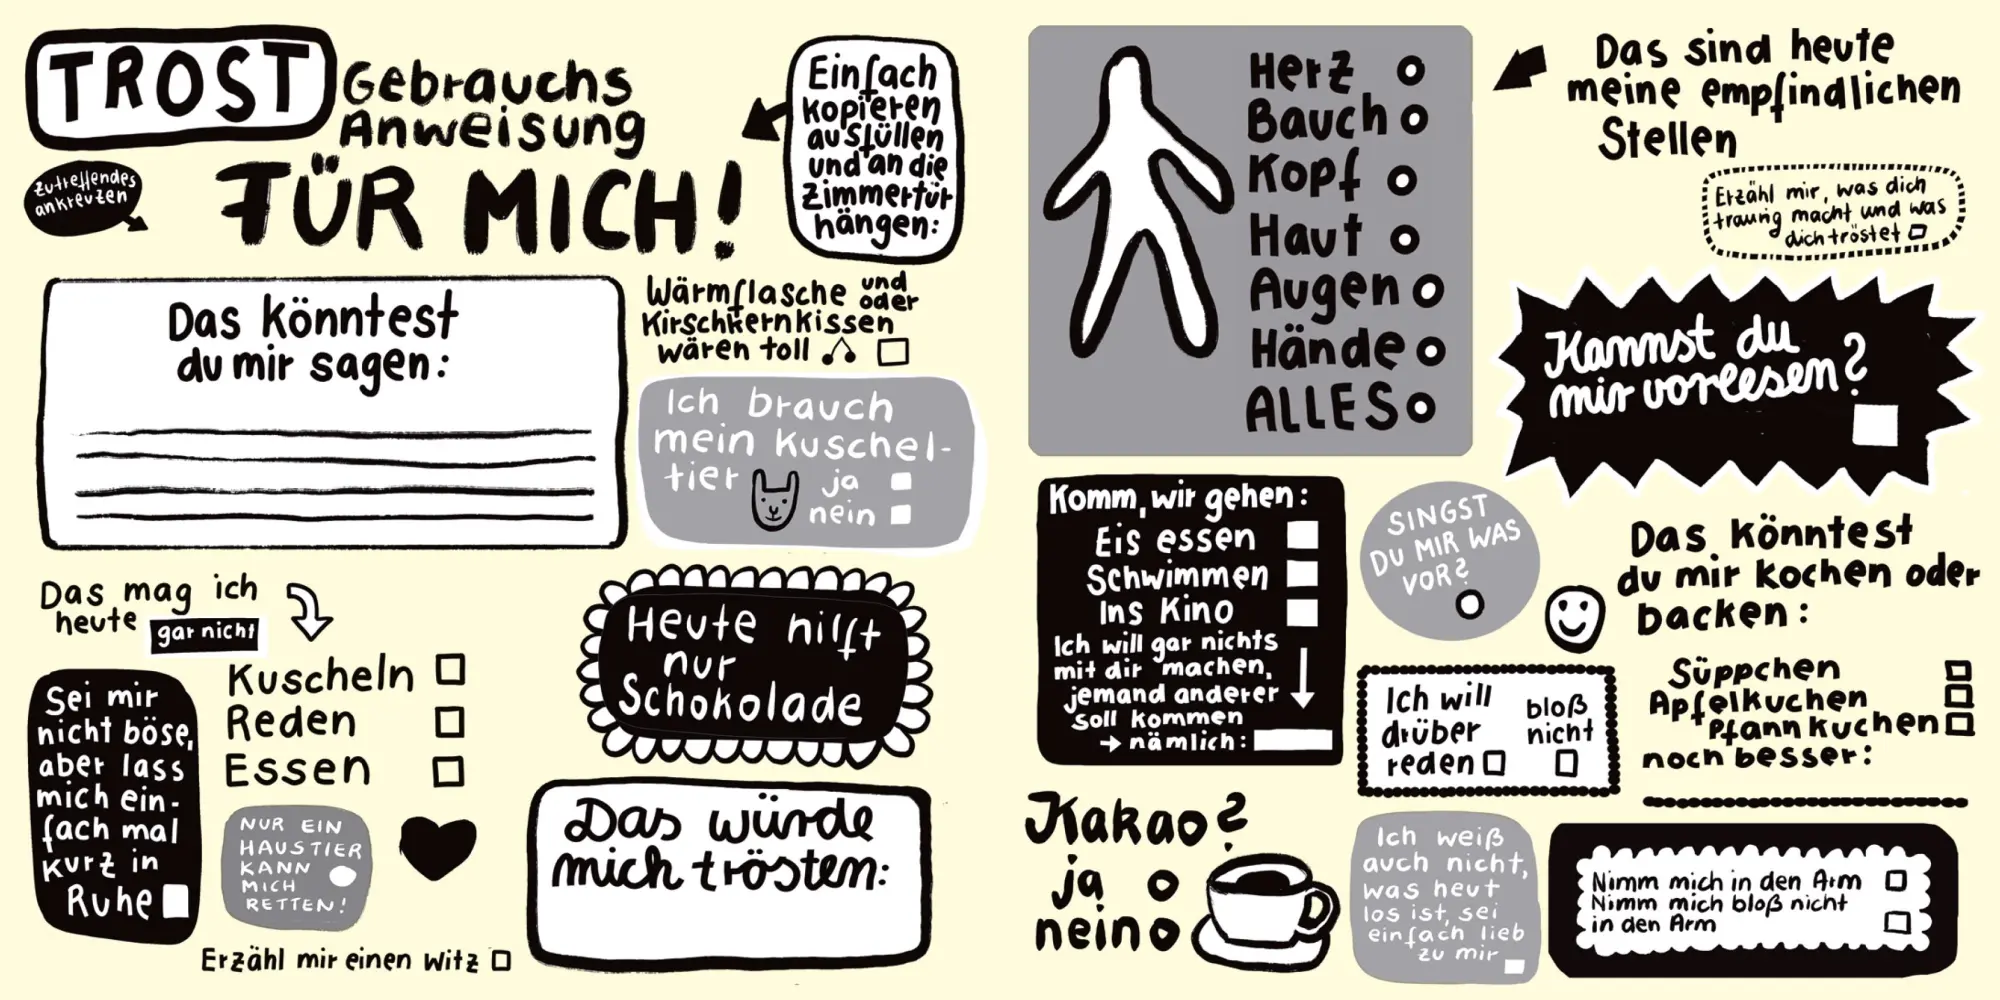 TROST
Gebrauchs
Anweisung
FÜR MICH!
Zutreffendes
ankreuzen
Einfach
kopieren
ausfüllen
und an die
Zimmertür
hängen:
Das könntest
du mir sagen:
Wärmflasche und
oder
Kirschkernkissen
wären toll
Ich brauch
mein Kuschel-
tier
ja
nein
Das mag ich
heute
gar nicht
Kuscheln
Reden
Essen
Sei mir
nicht böse,
aber lass
mich ein-
fach mal
kurz in
Ruhe
NUR EIN
HAUSTIER
KANN
MICH
RETTEN!
Erzähl mir einen Witz
Heute hilft
nur
Schokolade
Das würde
mich trösten:
Herz
Bauch
Kopf
Haut
Augen
Hände
ALLES
Das sind heute
meine empfindlichen
Stellen
Erzähl mir, was dich
traurig macht und was
dich tröstet
Kannst du
mir vorlesen?
Komm, wir gehen:
Eis essen
Schwimmen
Ins Kino
Ich will gar nichts
mit dir machen,
jemand anderer
soll kommen
→ nämlich:
SINGST
DU MIR WAS
VOR?
Das könntest
du mir kochen oder
backen:
Süppchen
Apfelkuchen
Pfannkuchen
noch besser:
Ich will
drüber
reden
bloß
nicht
Kakao?
ja
nein
Ich weiß
auch nicht,
was heut
los ist, sei
einfach lieb
zu mir
Nimm mich in den Arm
Nimm mich bloß nicht
in den Arm